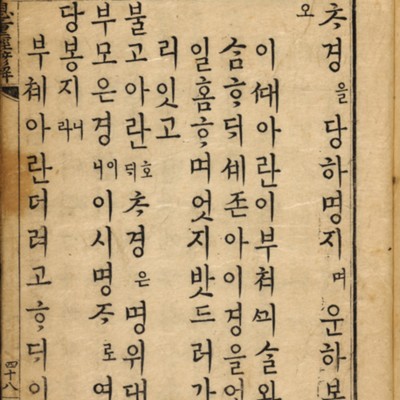 ᄎᆞ경을당하명지며운하보
오
이ᄣᅢ아란이부텨ᄭᅴ술와
ᄉᆞᆷᄒᆞ듸셰존아이경을어
일홈ᄒᆞ며엇지밧드러가
리잇고
불고아란호듸ᄎᆞ경은명위대
부모은경이니이시명ᄌᆞ로여
당봉지니라
부텨아란더려고ᄒᆞ듸이
恩重經諺解
四十八